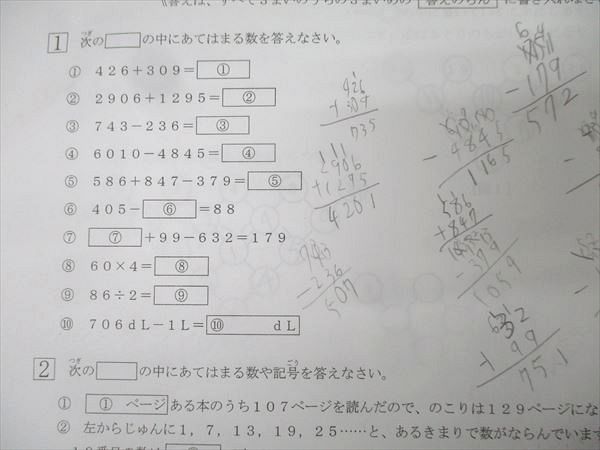 《答えは、すべて3まいのうちの3まいめの 答えのらん に書き入れなさ
1 次の の中にあてはまる数を答えなさい。
つぎ
① 426+309= ①
② 2906+1295= ②
③ 743-236= ③
④ 6010-4845= ④
⑤ 586+847-379= ⑤
⑥ 405- ⑥ =88
⑦ ⑦ +99-632=179
⑧ 60×4= ⑧
⑨ 86÷2= ⑨
⑩ 706dL-1L= ⑩ dL
426
+309
735
2906
+1295
4201
743
-236
507
-179
572
-4845
1165
586
+847
-379
1059
+99
751
2 次の の中にあてはまる数や記号を答えなさい。
つぎ ごう
① ① ページ ある本のうち107ページを読んだので、のこりは129ページにな
② 左からじゅんに1,7,13,19,25……と、あるきまりで数がならんでいます